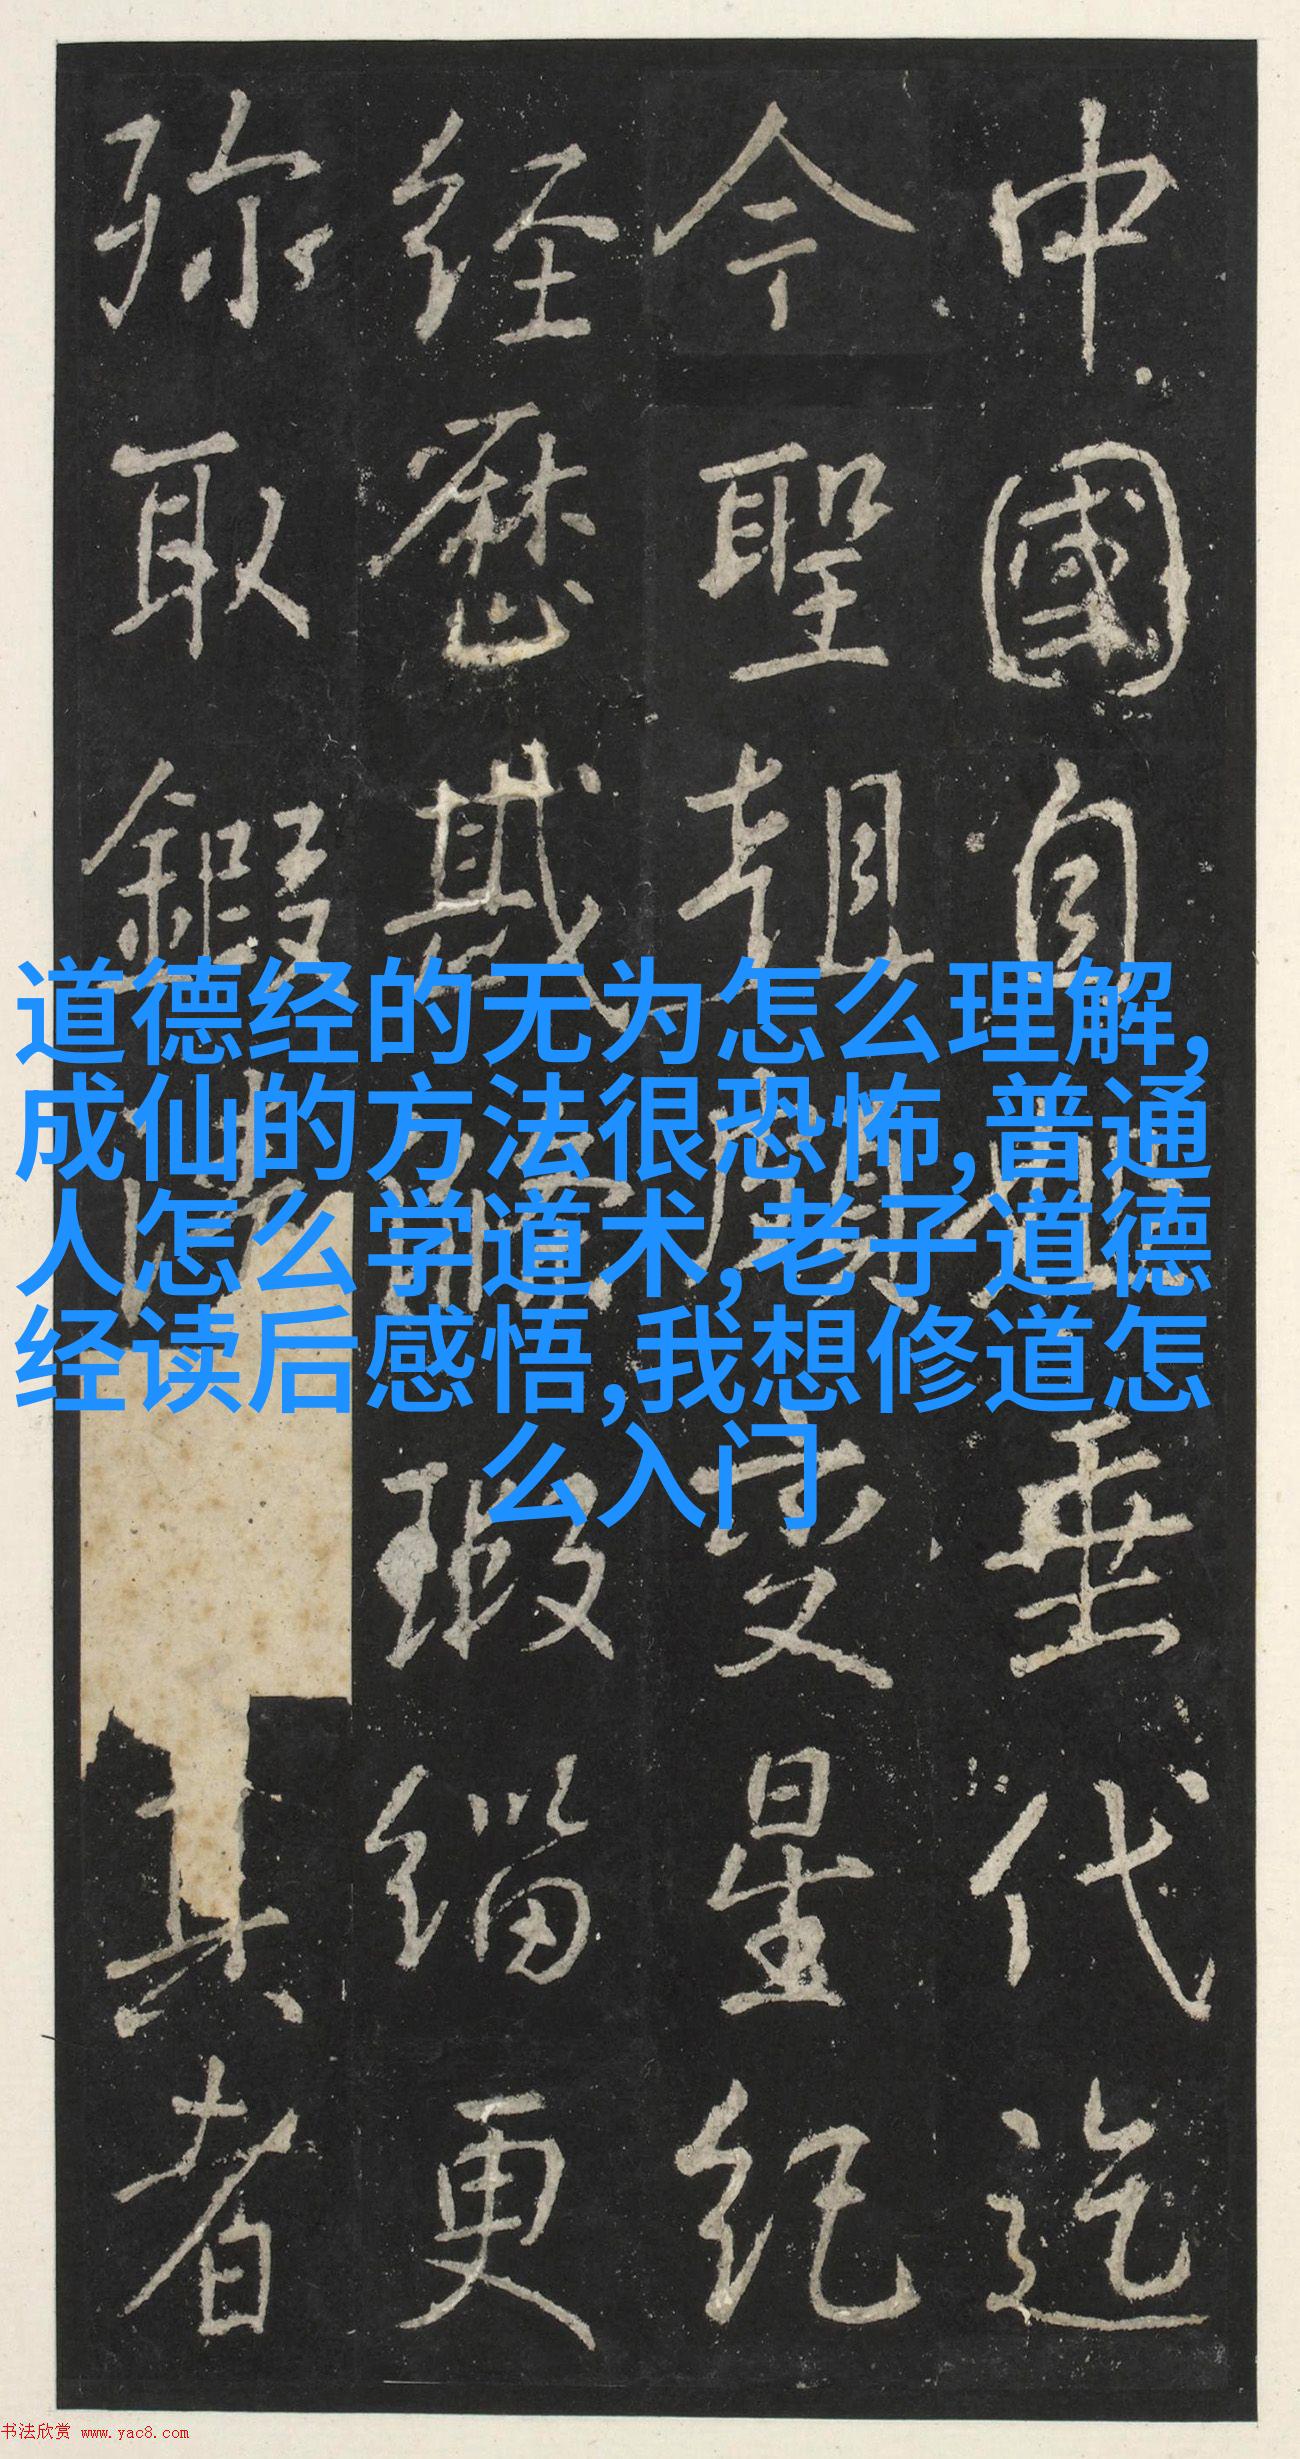 道德经的无为怎么理解,
成仙的方法很恐怖,普通
人怎么学道术,老子道德
经读后感悟,我想修道怎
么入门
中國自垂代迄
今聖朝星紀
經歷瑕緇更
弥取鍜真者
书法欣赏 www.yac8.com